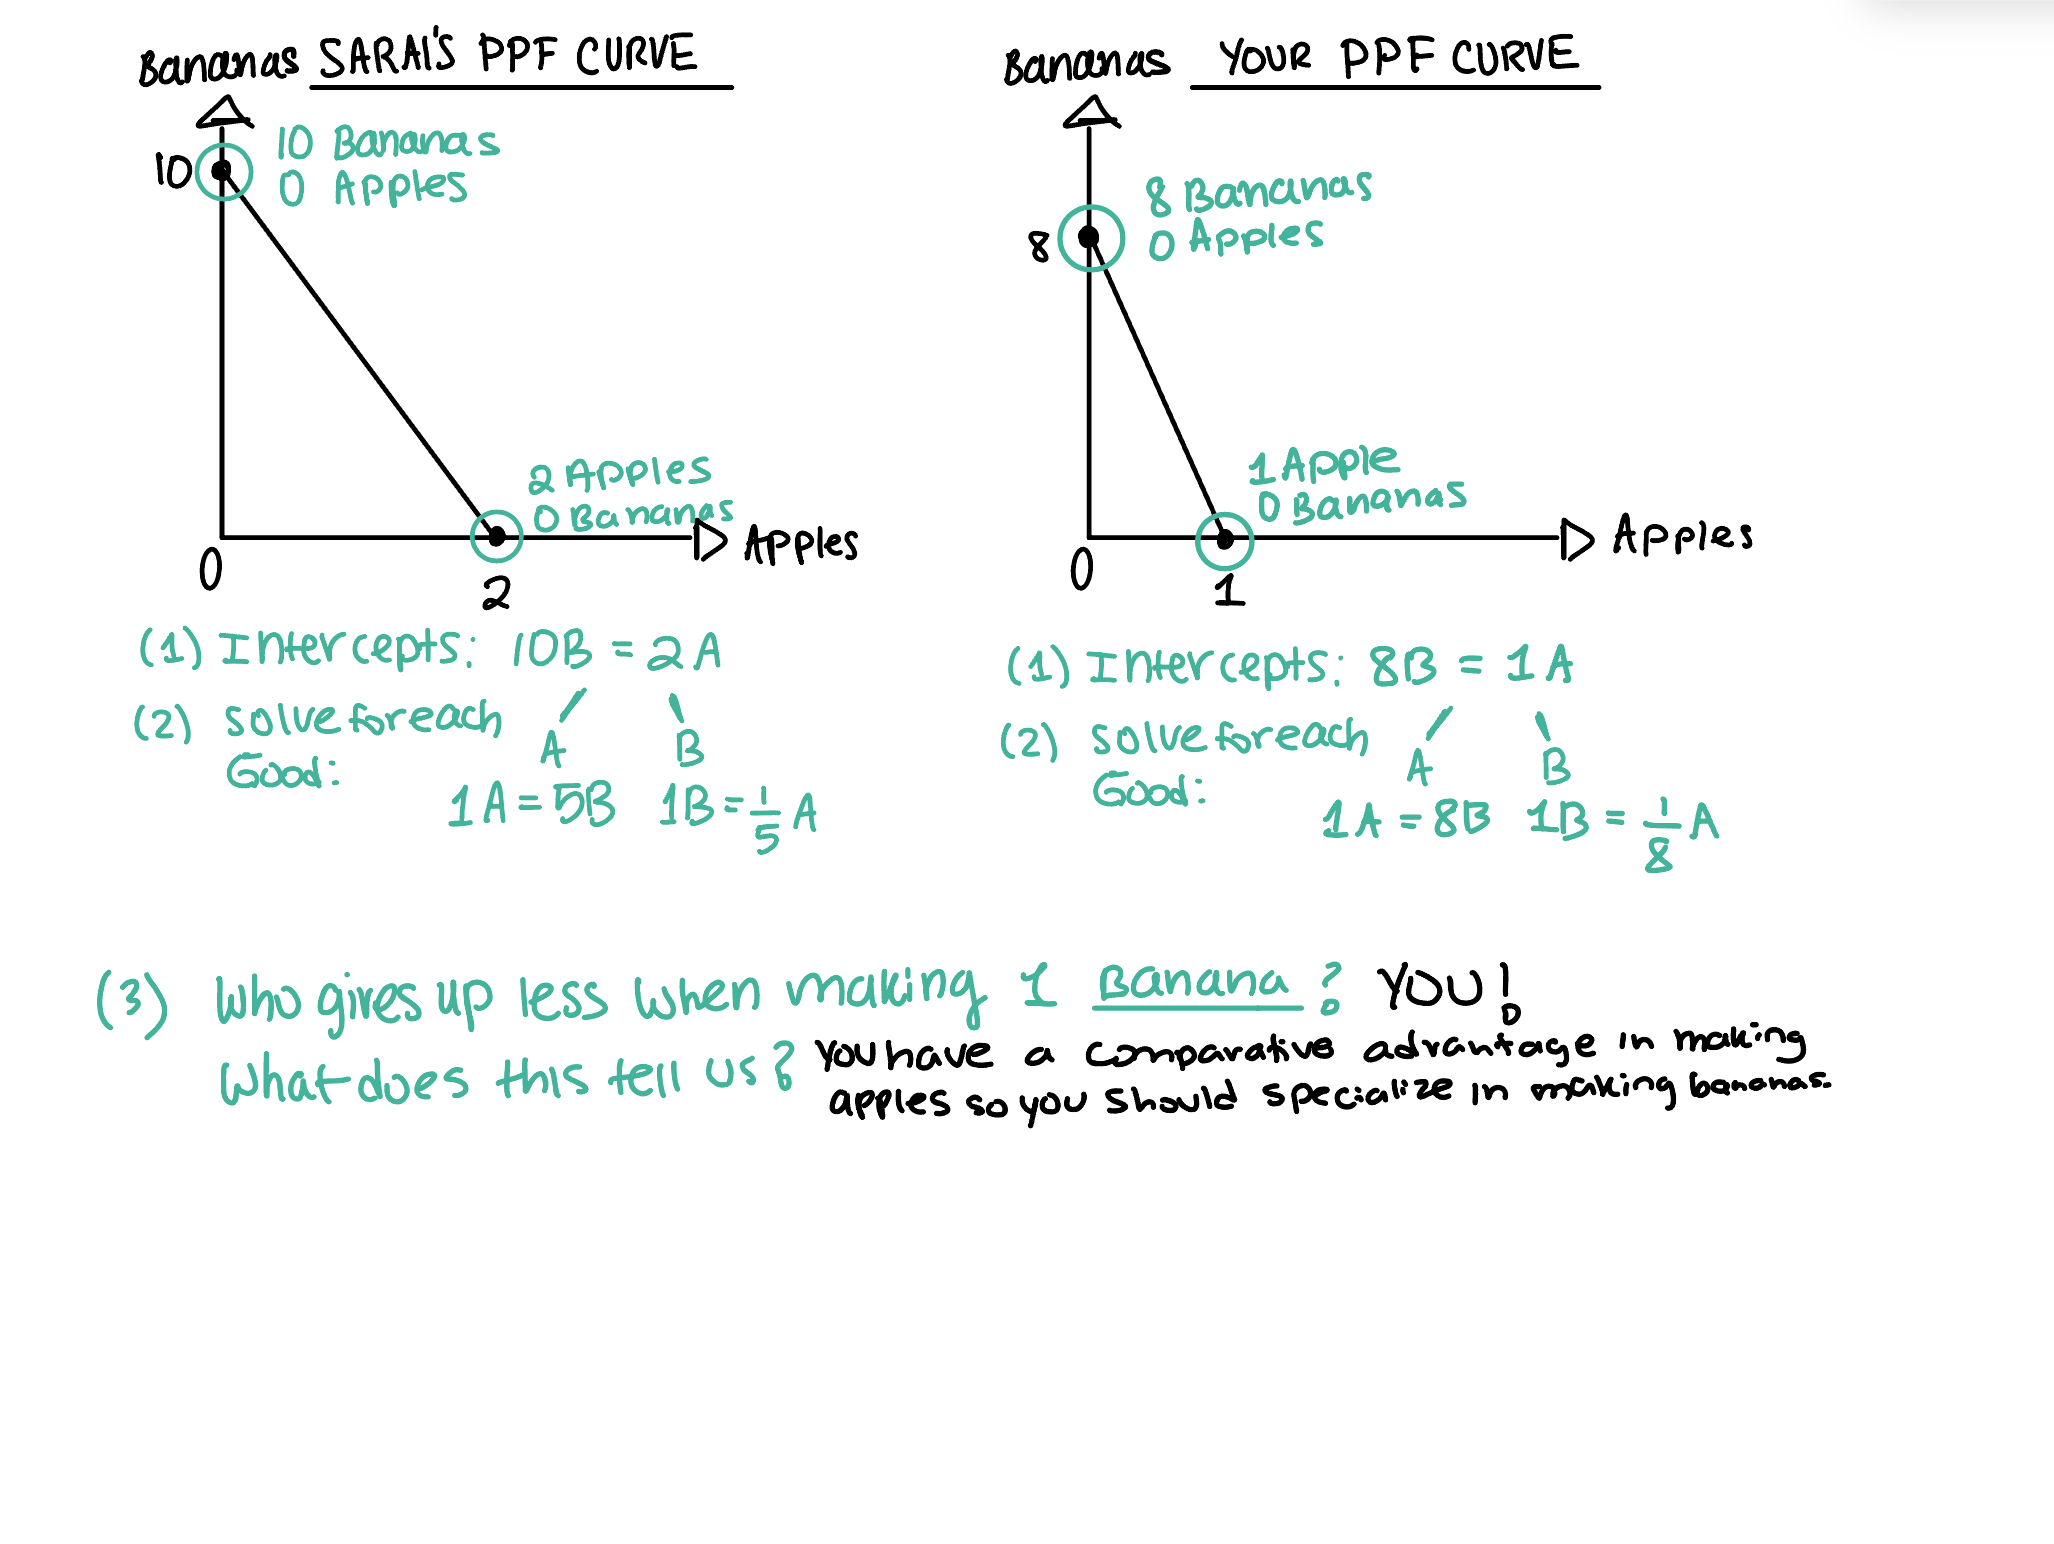 Bananas SARAI'S PPF CURVE
10 Bananas
0 Apples
10
2 Apples
0 Bananas
Apples
0
2
(1) Intercepts: 10B = 2A
(2) solve for each
Good:
A
B
1A = 5B 1B = 1/5 A
Bananas YOUR PPF CURVE
8 Bananas
0 Apples
8
1 Apple
0 Bananas
Apples
0
1
(1) Intercepts: 8B = 1A
(2) solve for each
Good:
A
B
1A = 8B 1B = 1/8 A
(3) Who gives up less when making 1 Banana? YOU!
What does this tell us? You have a comparative advantage in making
apples so you should specialize in making bananas.